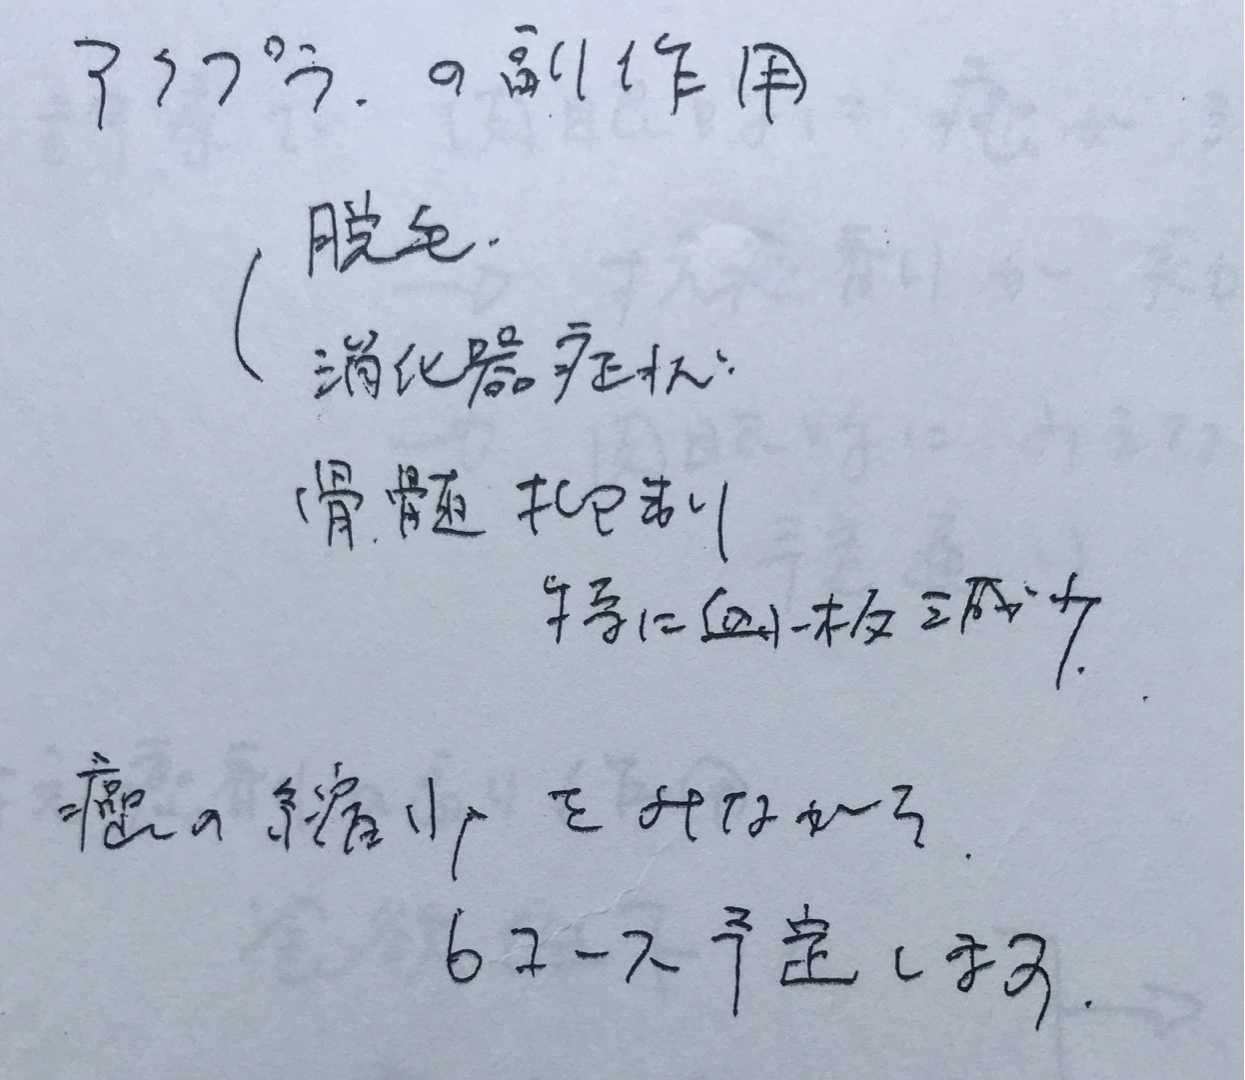 アクプラ.の副作用
脱毛.
消化器症状.
骨髄抑制
特に血小板減少.
癌の縮小をみながら.
6コース予定します.